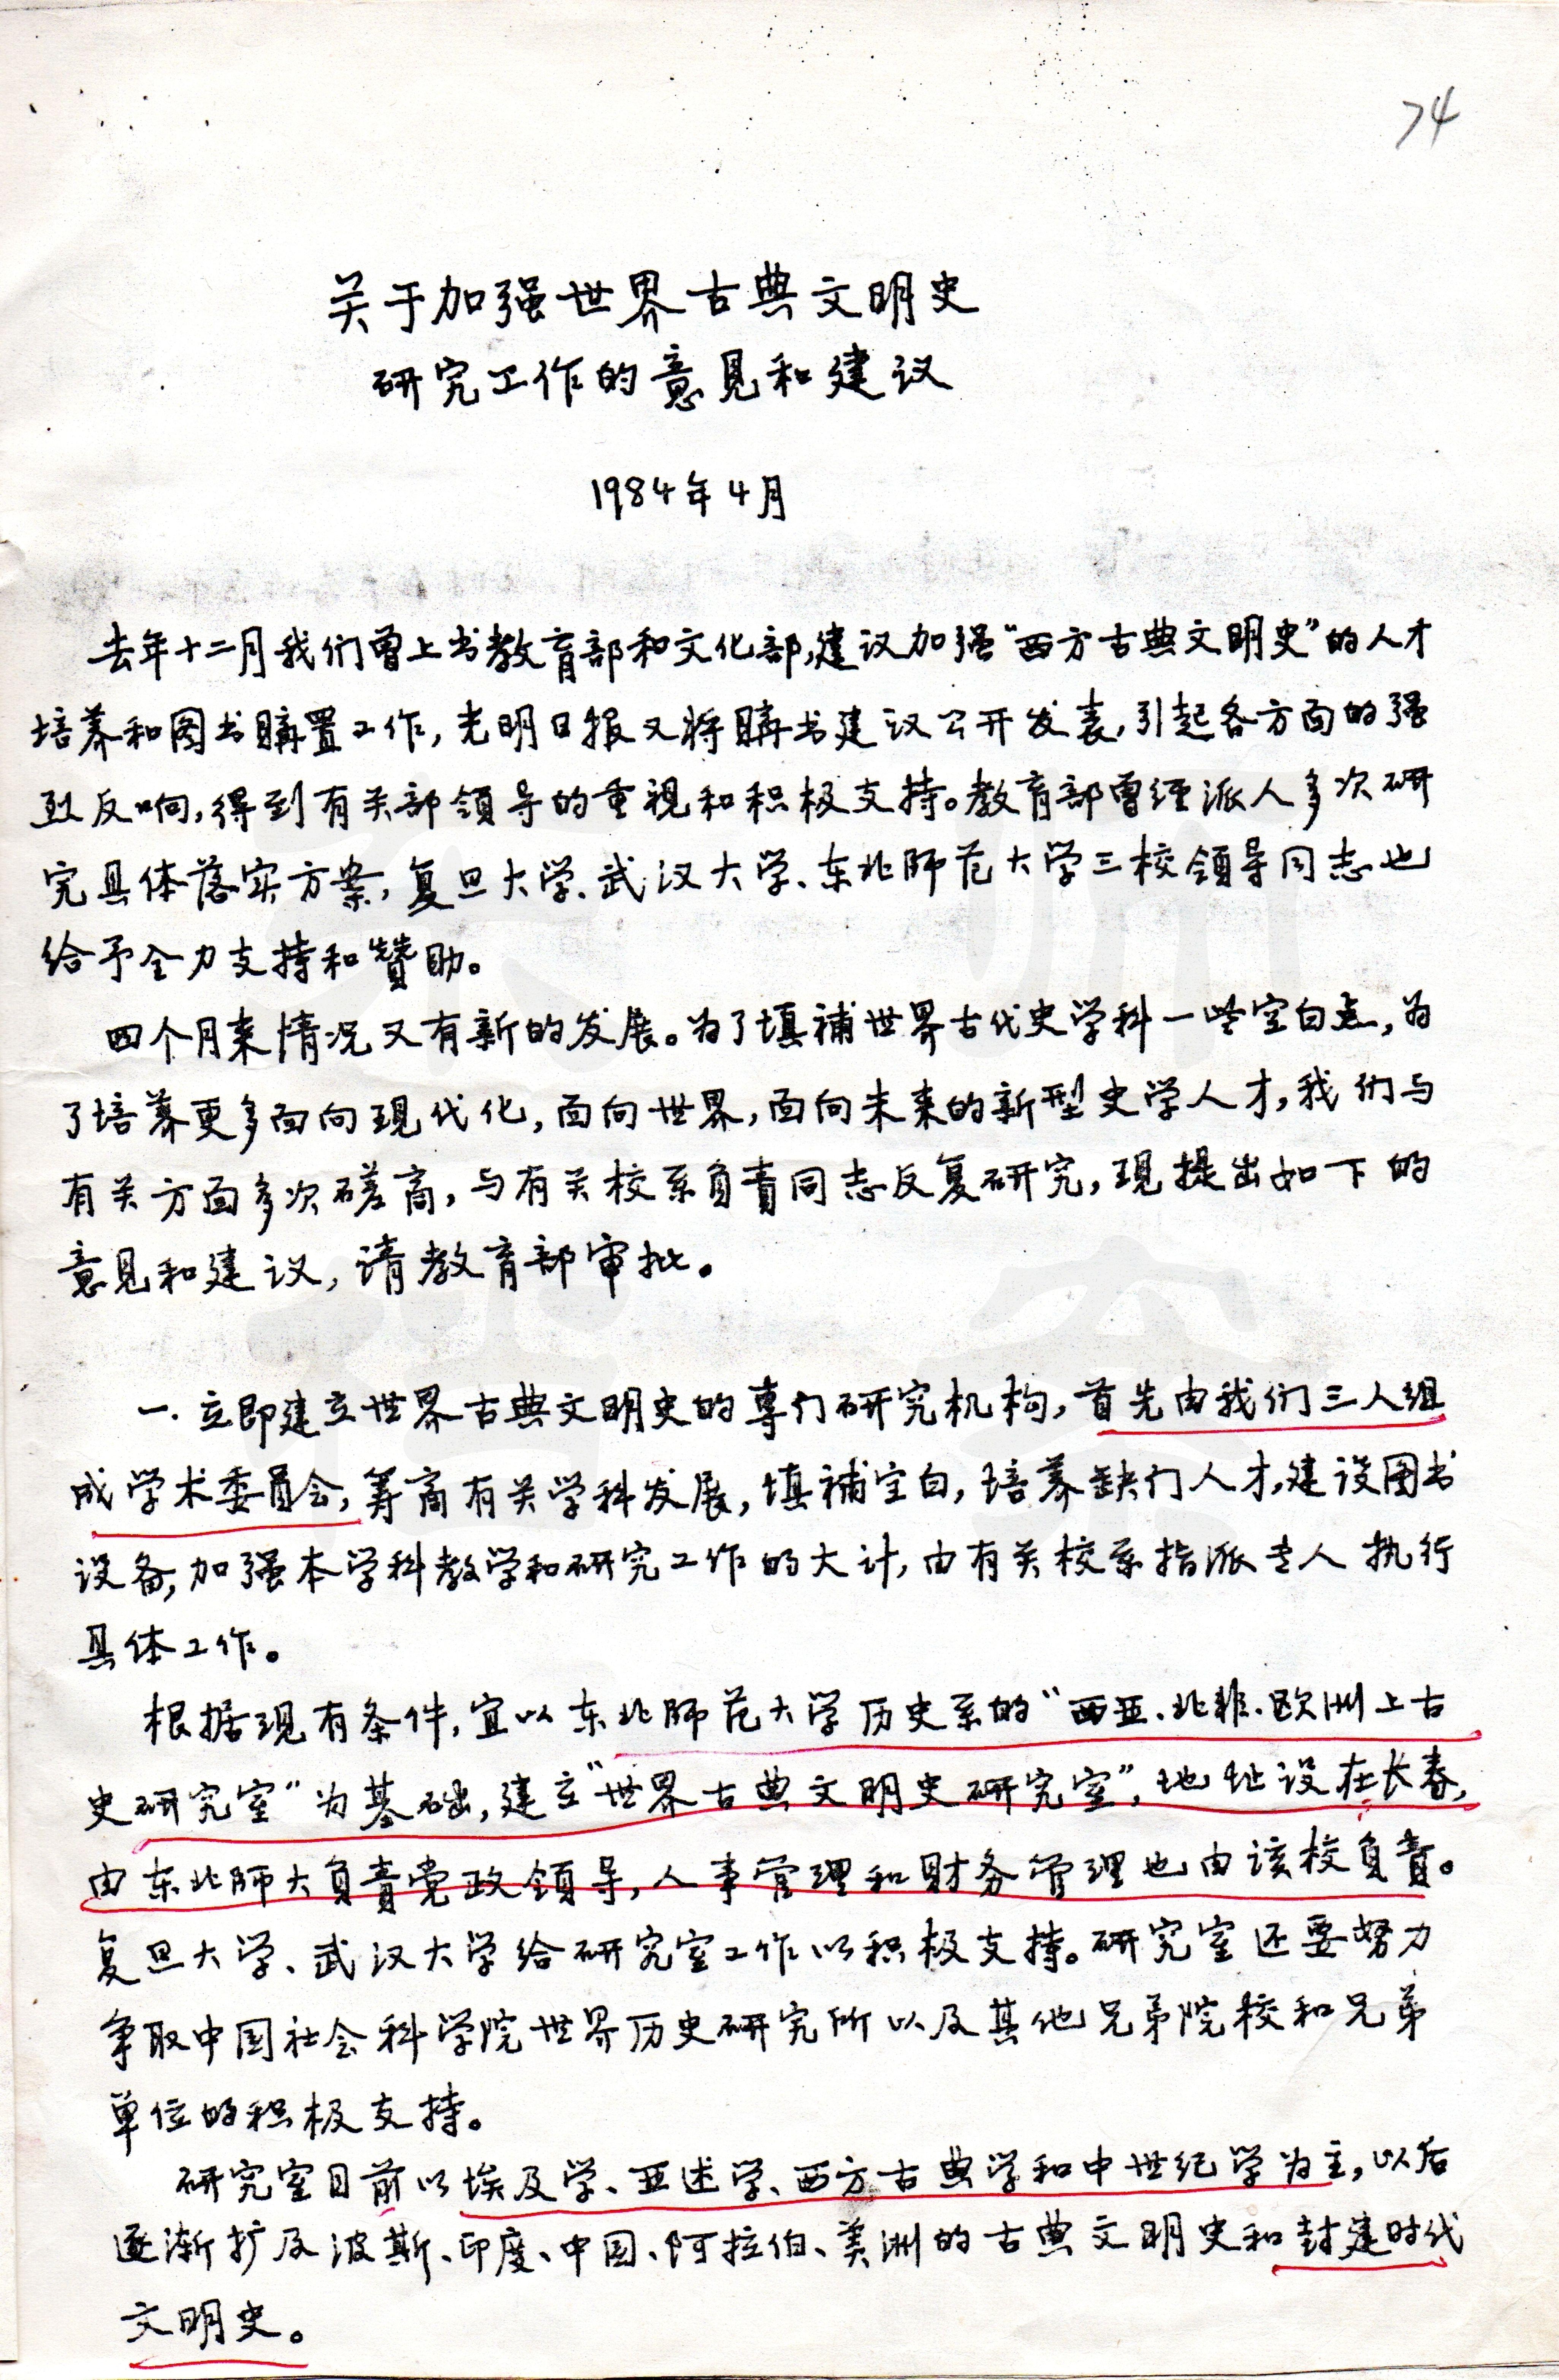 74
关于加强世界古典文明史
研究工作的意见和建议
1984年4月
去年十二月我们曾上书教育部和文化部,建议加强“西方古典文明史”的人才
培养和图书购置工作,光明日报又将购书建议公开发表,引起各方面的强
烈反响,得到有关部领导的重视和积极支持。教育部曾经派人多次研
究具体落实方案,复旦大学、武汉大学、东北师范大学三校领导同志也
给予全力支持和赞助。
四个月来情况又有新的发展。为了填補世界古代史学科一些空白点,为
了培养更多面向现代化,面向世界,面向未来的新型史学人才,我们与
有关方面多次磋商,与有关校系负责同志反复研究,现提出如下的
意见和建议,请教育部审批。
一.立即建立世界古典文明史的专门研究机构,首先由我们三人组
成学术委员会,筹商有关学科发展,填補空白,培养缺门人才,建设图书
设备,加强本学科教学和研究工作的大计,由有关校系指派专人执行
具体工作。
根据现有条件,宜以东北师范大学历史系的“西亚、北非、欧洲上古
史研究室”为基础,建立“世界古典文明史研究室”,地址设在长春,
由东北师大负责党政领导,人事管理和财务管理也由该校负责。
复旦大学、武汉大学给研究室工作以积极支持。研究室还要努力
争取中国社会科学院世界历史研究所以及其他兄弟院校和兄弟
单位的积极支持。
研究室目前以埃及学、亚述学、西方古典学和中世纪学为主,以后
逐渐扩及波斯、印度、中国、阿拉伯、美洲的古典文明史和封建时代
文明史。